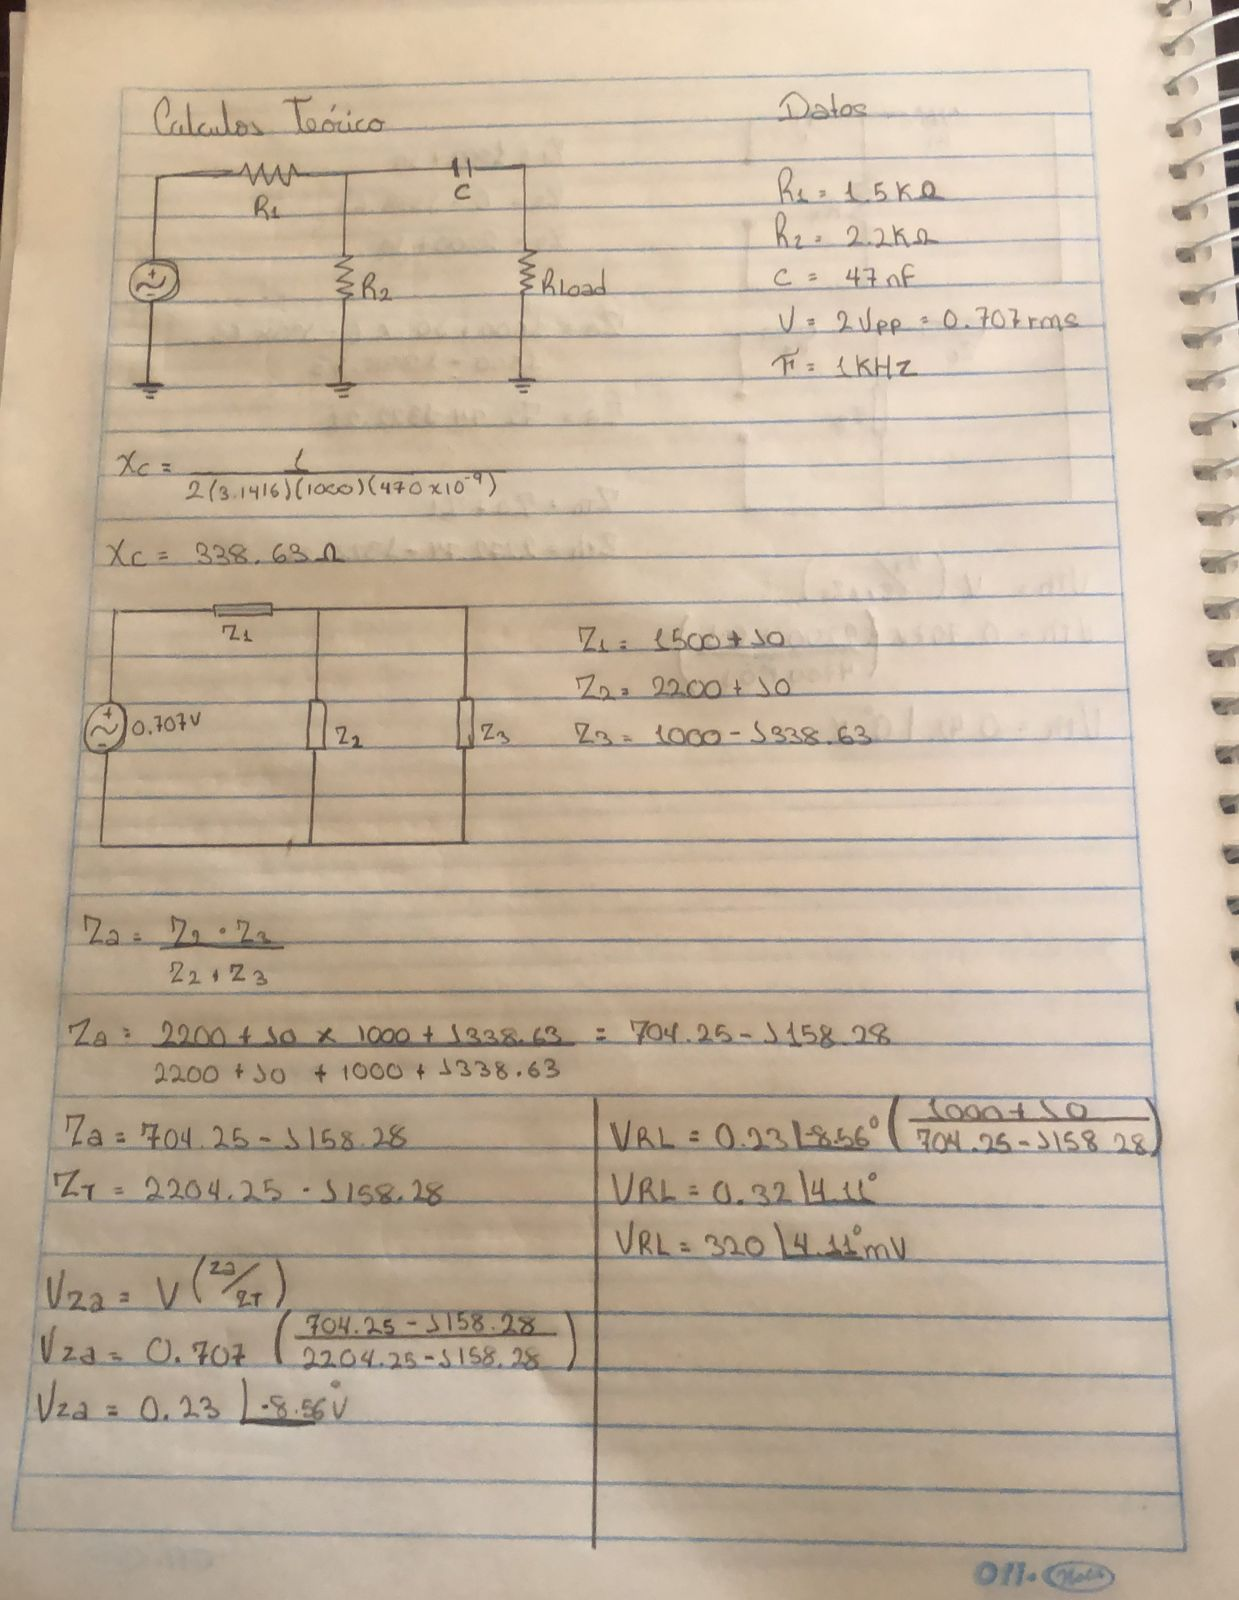 Calculos Teórico
Datos
R1
C
R2
RLoad
R1 = 1.5KΩ
R2 = 2.2KΩ
C = 47nF
V = 2Vpp = 0.707rms
F = 1KHZ
Xc = 1 / 2(3.1416)(1000)(470x10^-9)
Xc = 338.63Ω
Z1
0.707V
Z2
Z3
Z1 = 1500 + J0
Z2 = 2200 + J0
Z3 = 1000 - J338.63
Za = Z2 · Z3 / Z2 + Z3
Za = 2200 + J0 x 1000 + J338.63 / 2200 + J0 + 1000 + J338.63 = 704.25 - J158.28
Za = 704.25 - J158.28
ZT = 2204.25 - J158.28
Vza = V (za/ZT)
Vza = 0.707 (704.25 - J158.28 / 2204.25 - J158.28)
Vza = 0.23 ∠-8.56° V
VRL = 0.23 ∠-8.56° (1000 + J0 / 704.25 - J158.28)
VRL = 0.32 ∠4.11°
VRL = 320 ∠4.11° mV
011.